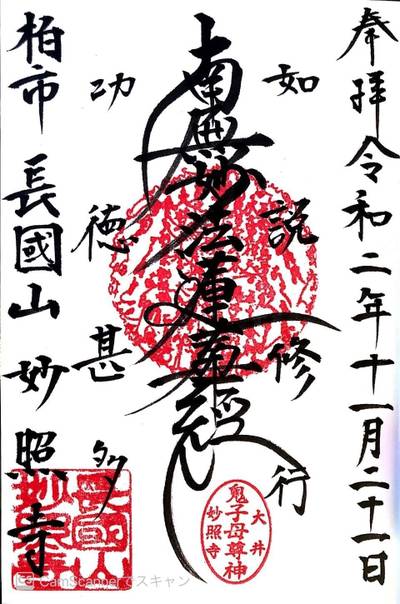 奉拝 令和二年十一月二十一日
如説修行
南無妙法蓮華経
功徳甚多
柏市 長國山 妙照寺
大井
鬼子母尊神
妙照寺
CamScannerでスキャン